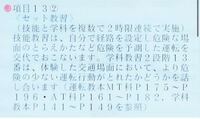 ●項目13②
<セット教習>
(技能と学科を複数で2時限連続で実施)
技能教習は、自分で経路を設定し危険な場
面のとらえかたなど危険を予測した運転を
交代でおこないます。学科教習2段階13
番は、体験した交通場面において、より危
険の少ない運転行動がとれたかどうかを話
し合います(運転教本MT科P175～P
196・AT科P161～P182、学科
教本P141～P149を参照)